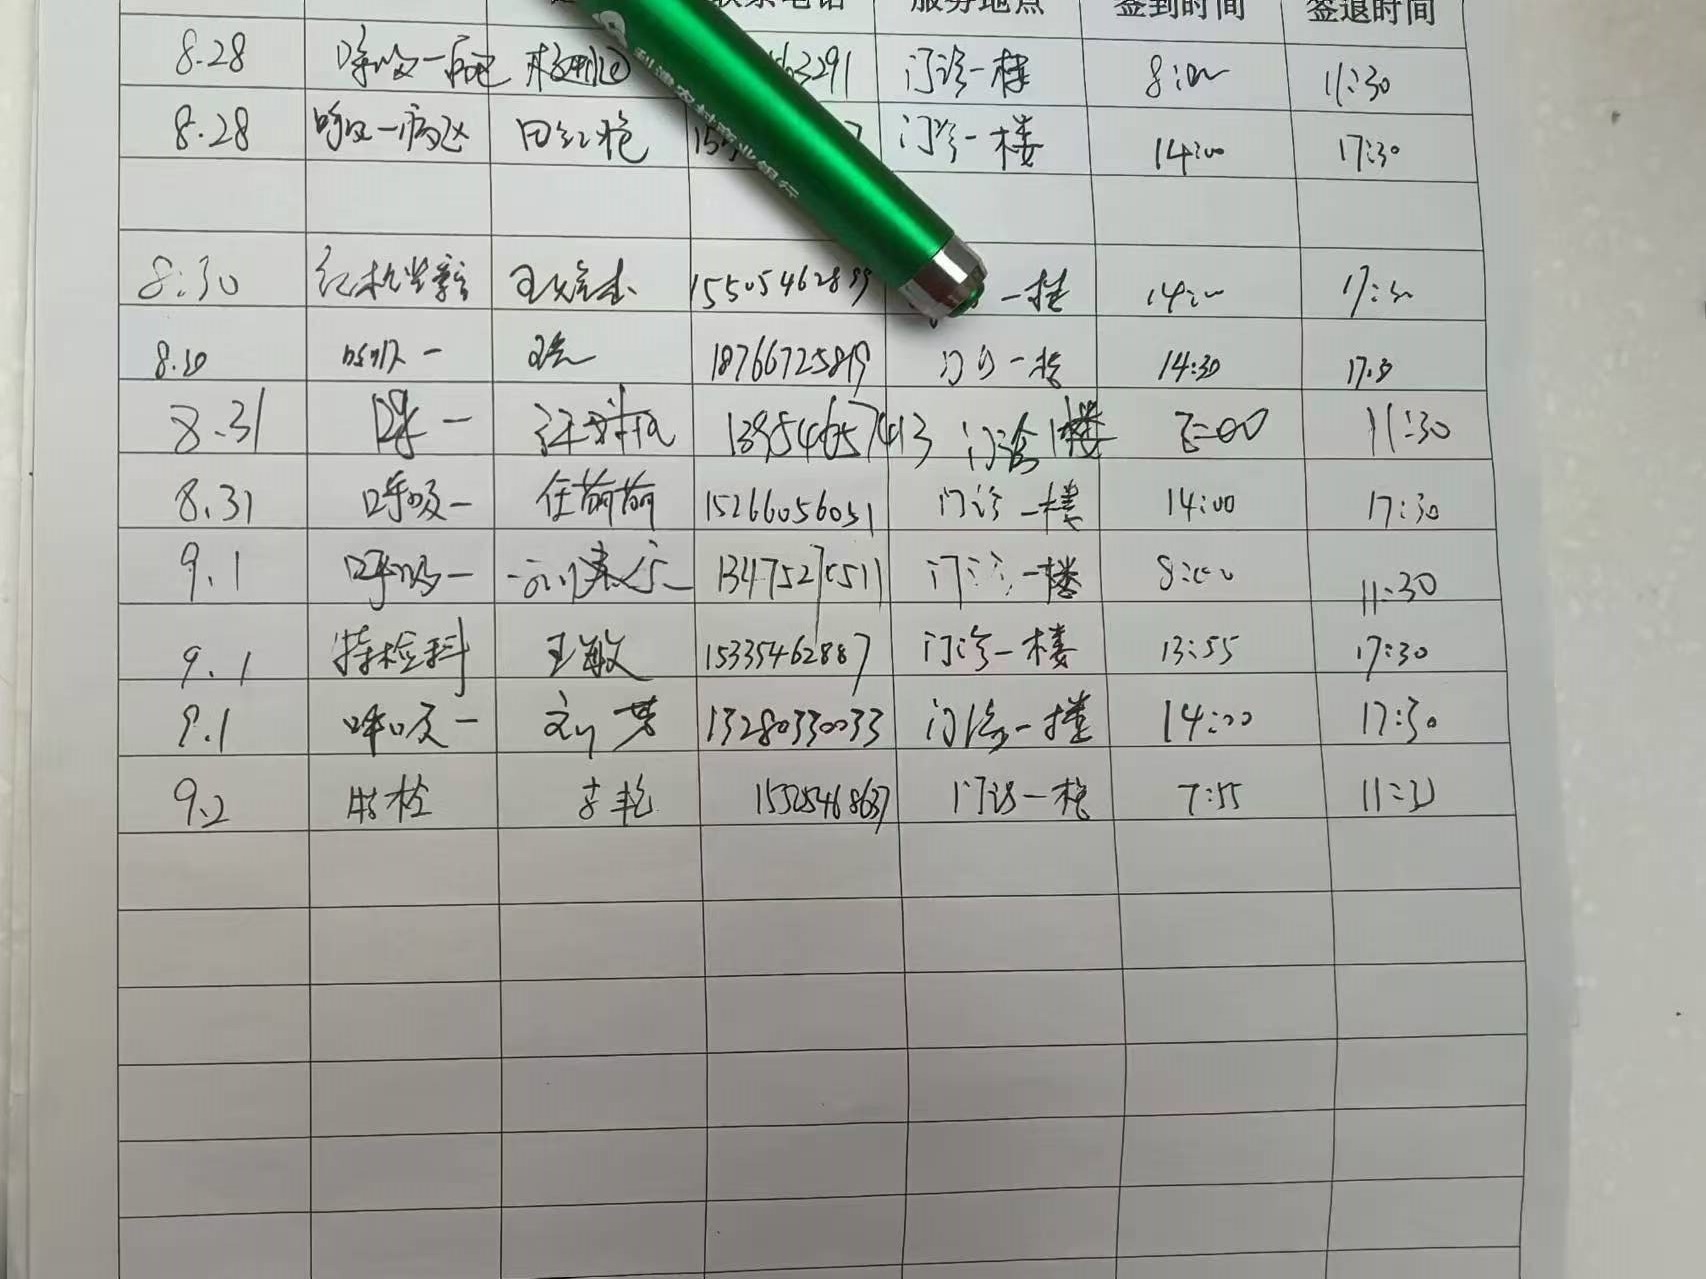 联系电话 服务地点 签到时间 签退时间
8.28 呼吸一病区 63291 门诊一楼 8:00 11:30
8.28 呼吸一病区 田红艳 15 7 门诊一楼 14:00 17:30
利津农村商业银行
8:30 15505462899 一楼 14:00 17:30
8.30 呼吸一 18766725819 门诊一楼 14:30 17:30
8.31 呼一 13954657413 门诊1楼 8:00 11:30
8.31 呼吸一 任萌萌 15266056051 门诊一楼 14:00 17:30
9.1 呼吸一 门诊一楼 8:00 11:30
9.1 特检科 王敏 15335462887 门诊一楼 13:55 17:30
9.1 呼吸一 刘芳 13280330033 门诊一楼 14:00 17:30
9.2 特检 李艳 门诊一楼 7:55 11:30